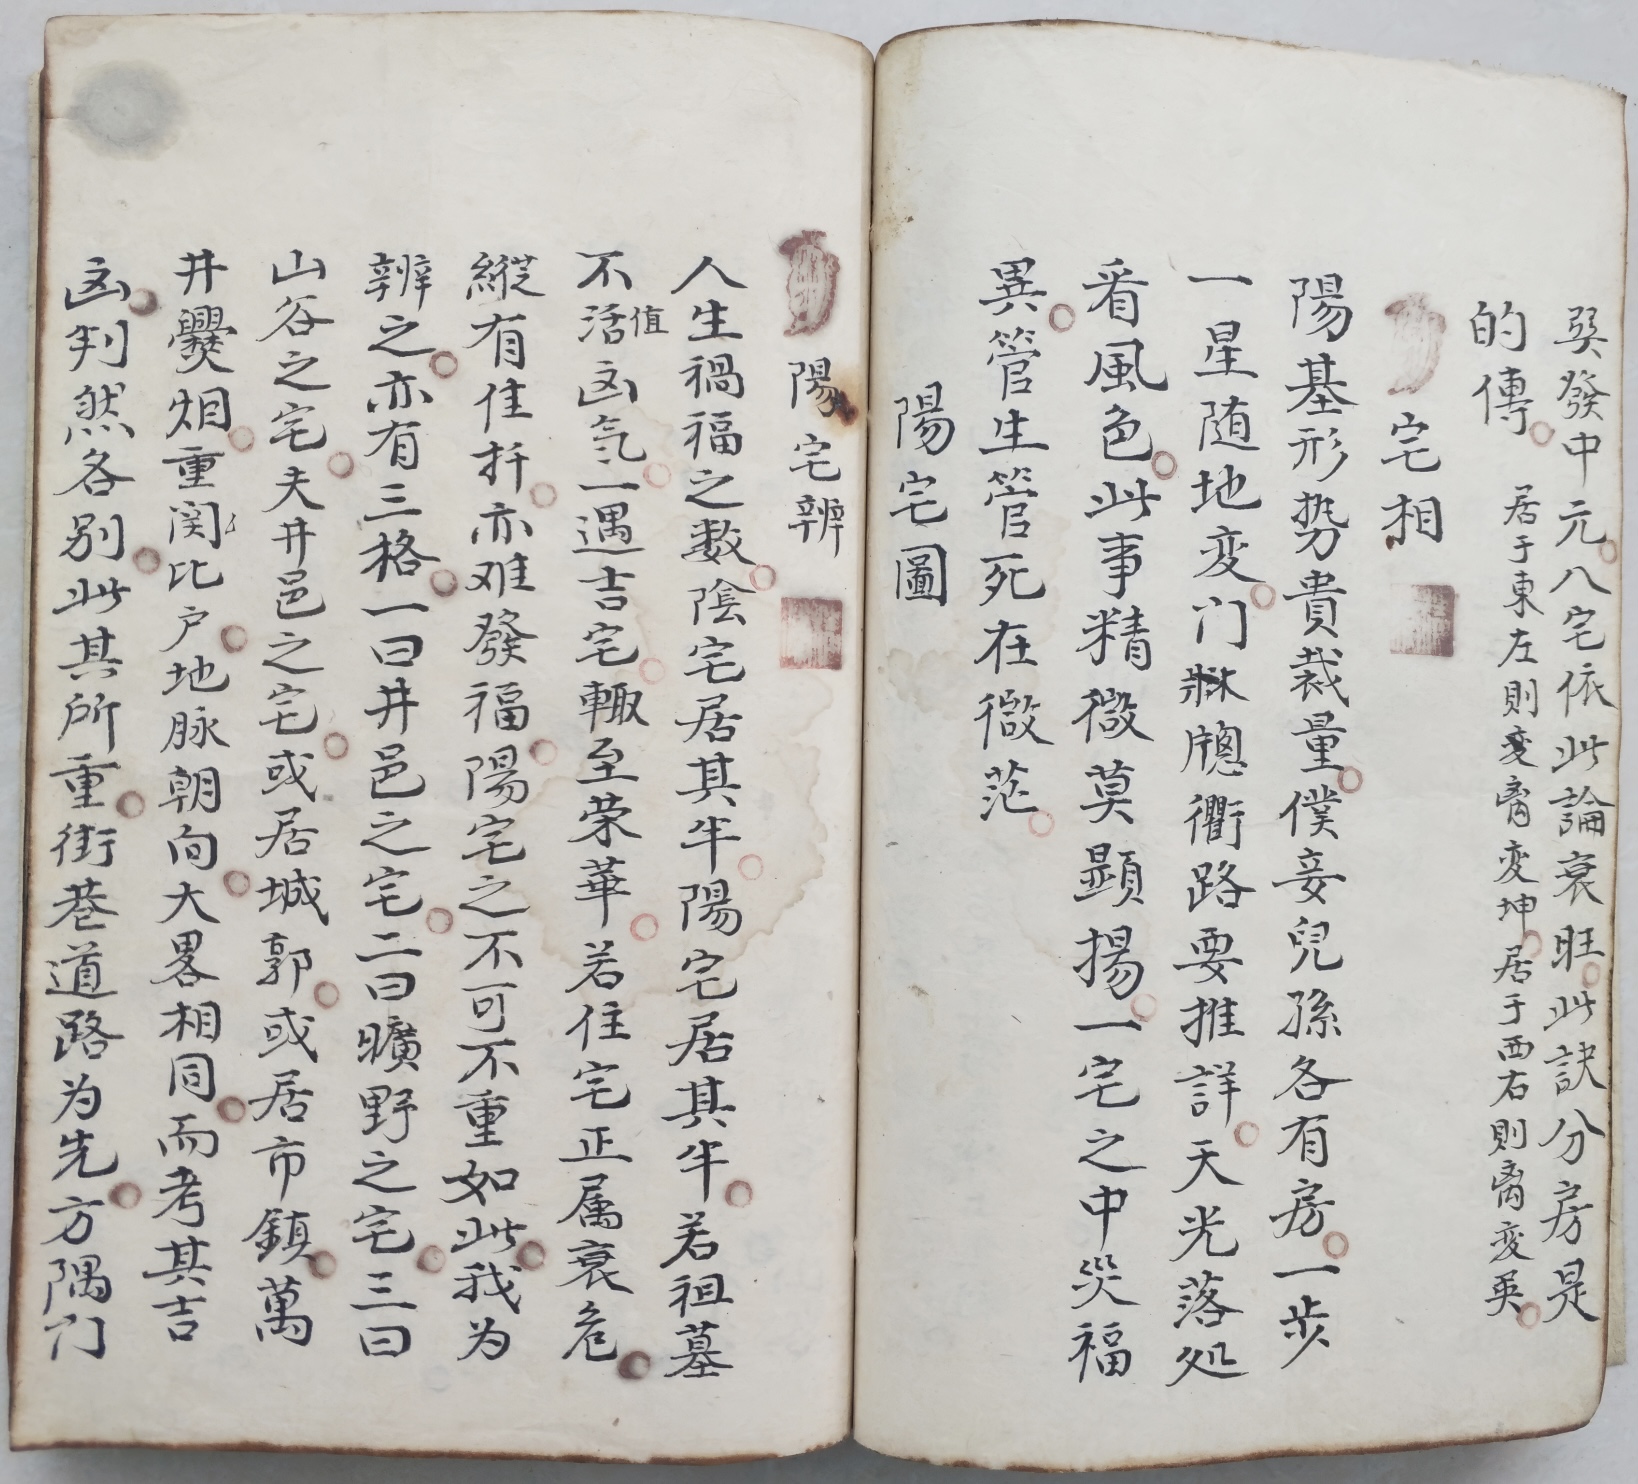 巽發中元八宅依此論衰旺此訣分房是
的傳 居于東左則变离变坤居于西右則离变巽
宅相
陽基形势貴裁量僕妾兒孫各有房一步
一星随地変门牀牕衢路要推詳天光落処
看風色此事精微莫顕揚一宅之中災福
異管生管死在微茫
陽宅圖
陽宅辨
人生禍福之数陰宅居其半陽宅居其半若祖墓
不活值凶气一遇吉宅輙至荣華若住宅正属衰危
縱有佳扦亦难發福陽宅之不可不重如此我为
辨之亦有三格一曰井邑之宅二曰曠野之宅三曰
山谷之宅夫井邑之宅或居城郭或居市鎮萬
井爨烟重関比户地脉朝向大畧相同而考其吉
凶判然各别此其所重街巷道路为先方隅门